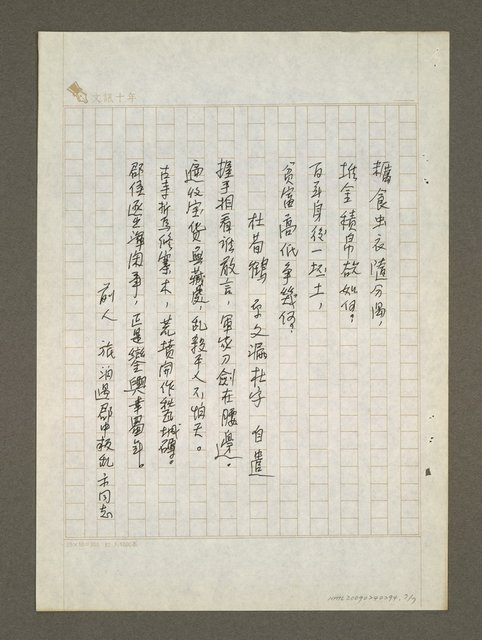 文訊十年
糲食虫衣隨分過，
堆金積帛欲如何？
百年身後一坵土，
貧富高低爭幾何？
杜荀鶴 原文漏杜字 自遣
握手相看誰敢言，軍家刀劍在腰邊。
遍收宝貨無藏處，乱殺平人不怕天。
古寺拆為修寨木，荒墳開作甃城磚。
郡侯逐出渾閑事，正是鑾輿幸蜀年。
前人 旅泊遇郡中叛乱示同志
NMTL20090240294. 2/7